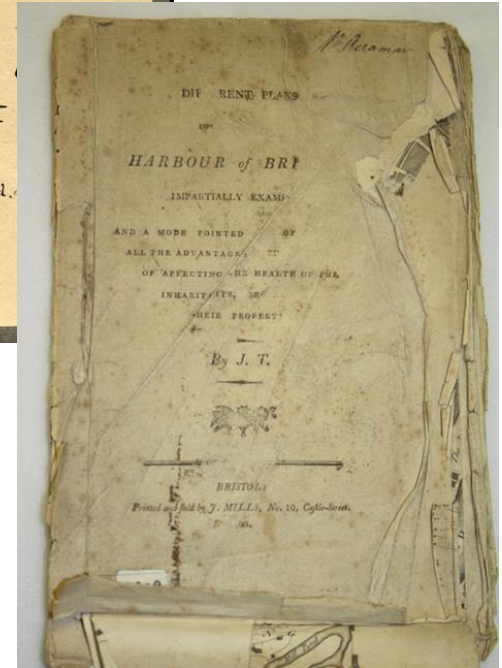 DIF RENT PLANS
HARBOUR of BRI
IMPARTIALLY EXAMI
AND A MODE POINTED OF
ALL THE ADVANTAGE
OF AFFECTING HE HEALTH OF THE
INHABIT ITS,
HEIR PROPERT
By J. T.
BRISTOL:
Printed and sold by J. MILLS, No. 10, Castle-Street.